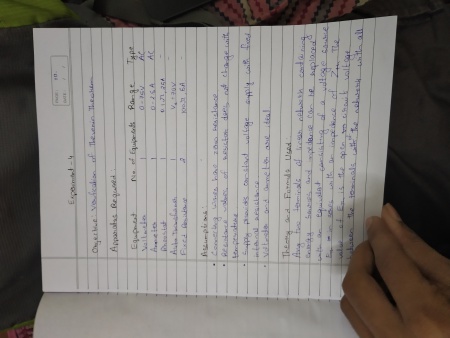 Experiment - 4
Objective: Verification of Thevenin Theorem
Apparatus Required
Equipment No. of Equipments Range Type
Voltmeter 1 0-75V AC
Ammeter 1 AC
Rheostat 1
Auto Transformer 1
Fixed Resistance 3
Assumptions:-
• Connecting wires have zero resistance
• Resistance of resistor does not change with
temperature
• Supply provides constant voltage supply with fixed
internal resistance
• Voltmeter and ammeter are ideal
Theory and Formula Used
Any two terminals of linear network containing
energy sources and impedance can be replaced
with an equivalent consisting of a voltage source
E in series with an impedance The
value of is the open circuit voltage
between the terminals of the network with all